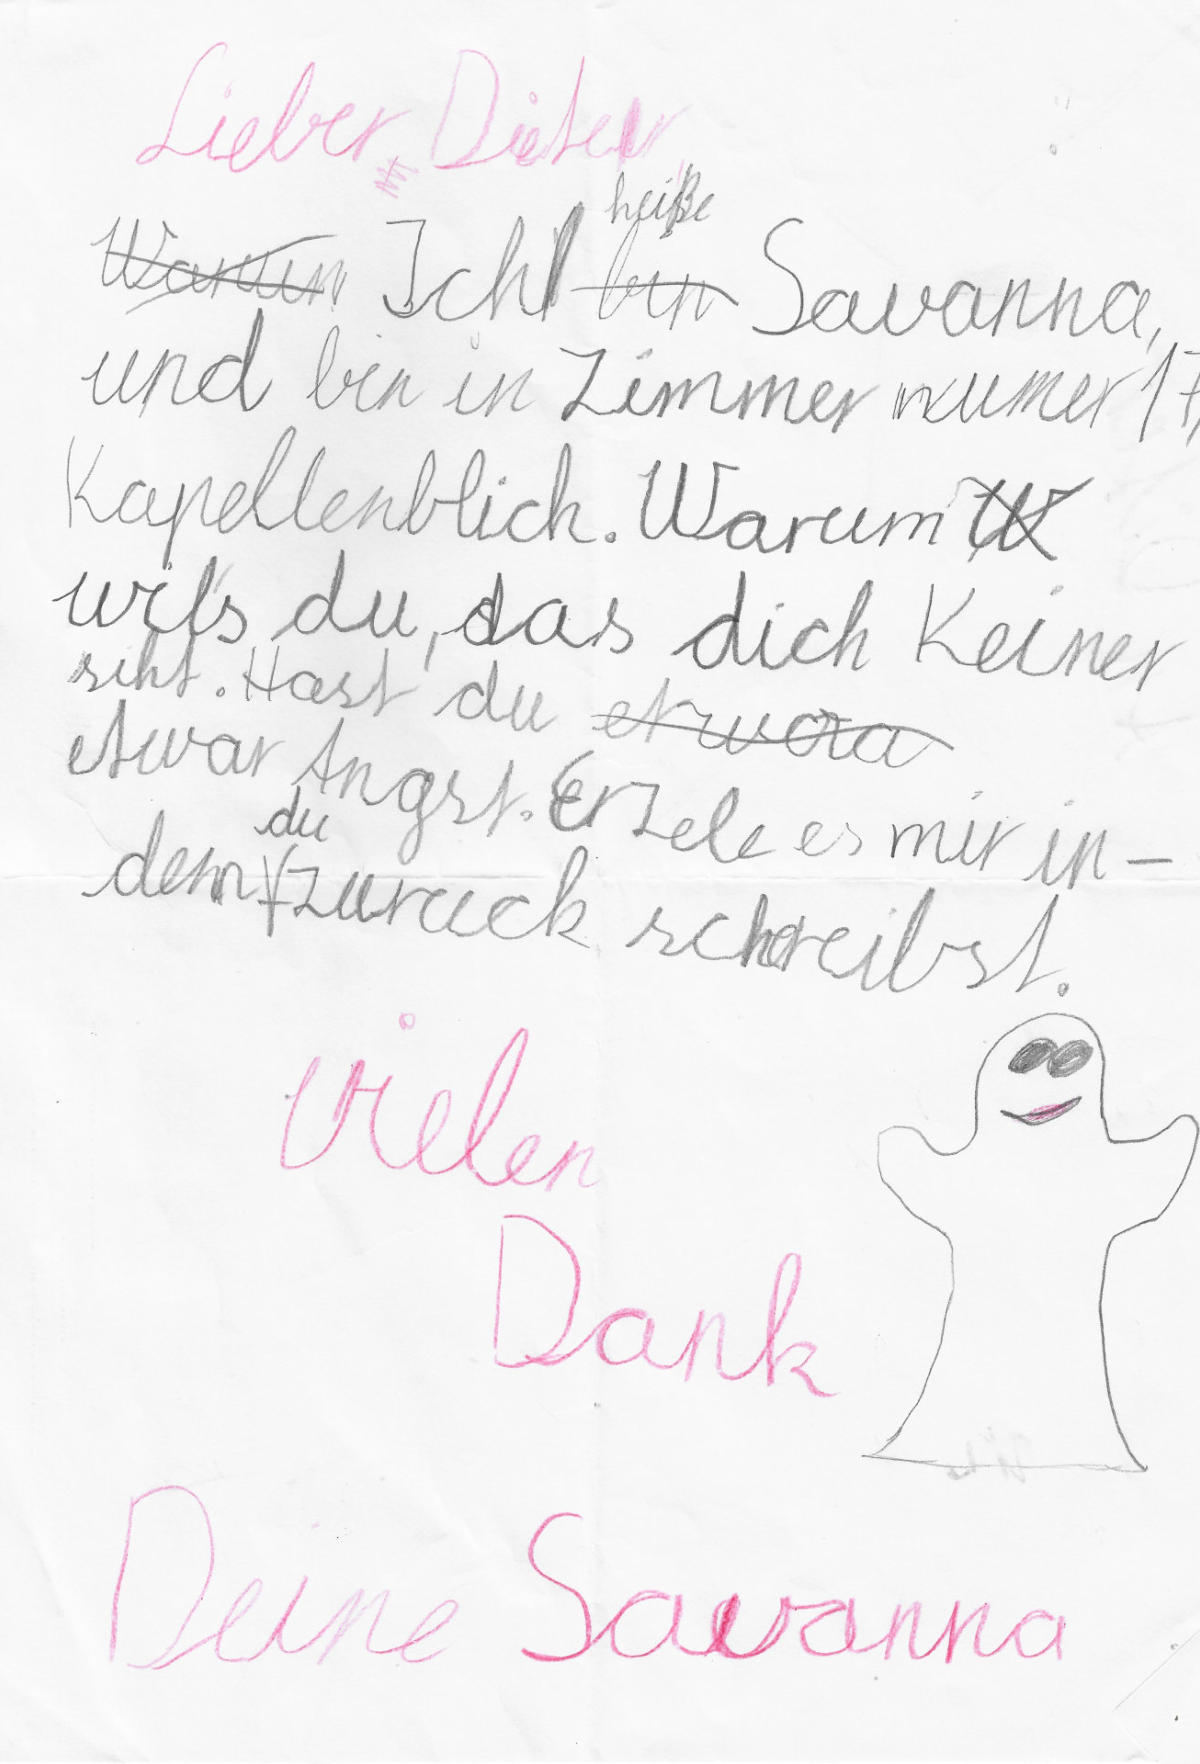 Lieber Dieter
heiße
Warum Ich bin Savanna,
und bin in Zimmer numer 17,
Kapellenblick. Warum W
wils du, das dich Keiner
siht. Hast du etwora
etwar Angst. Erzele es mir in-
du
dem zuruck schreibst.
Vielen
Dank
Deine Savanna